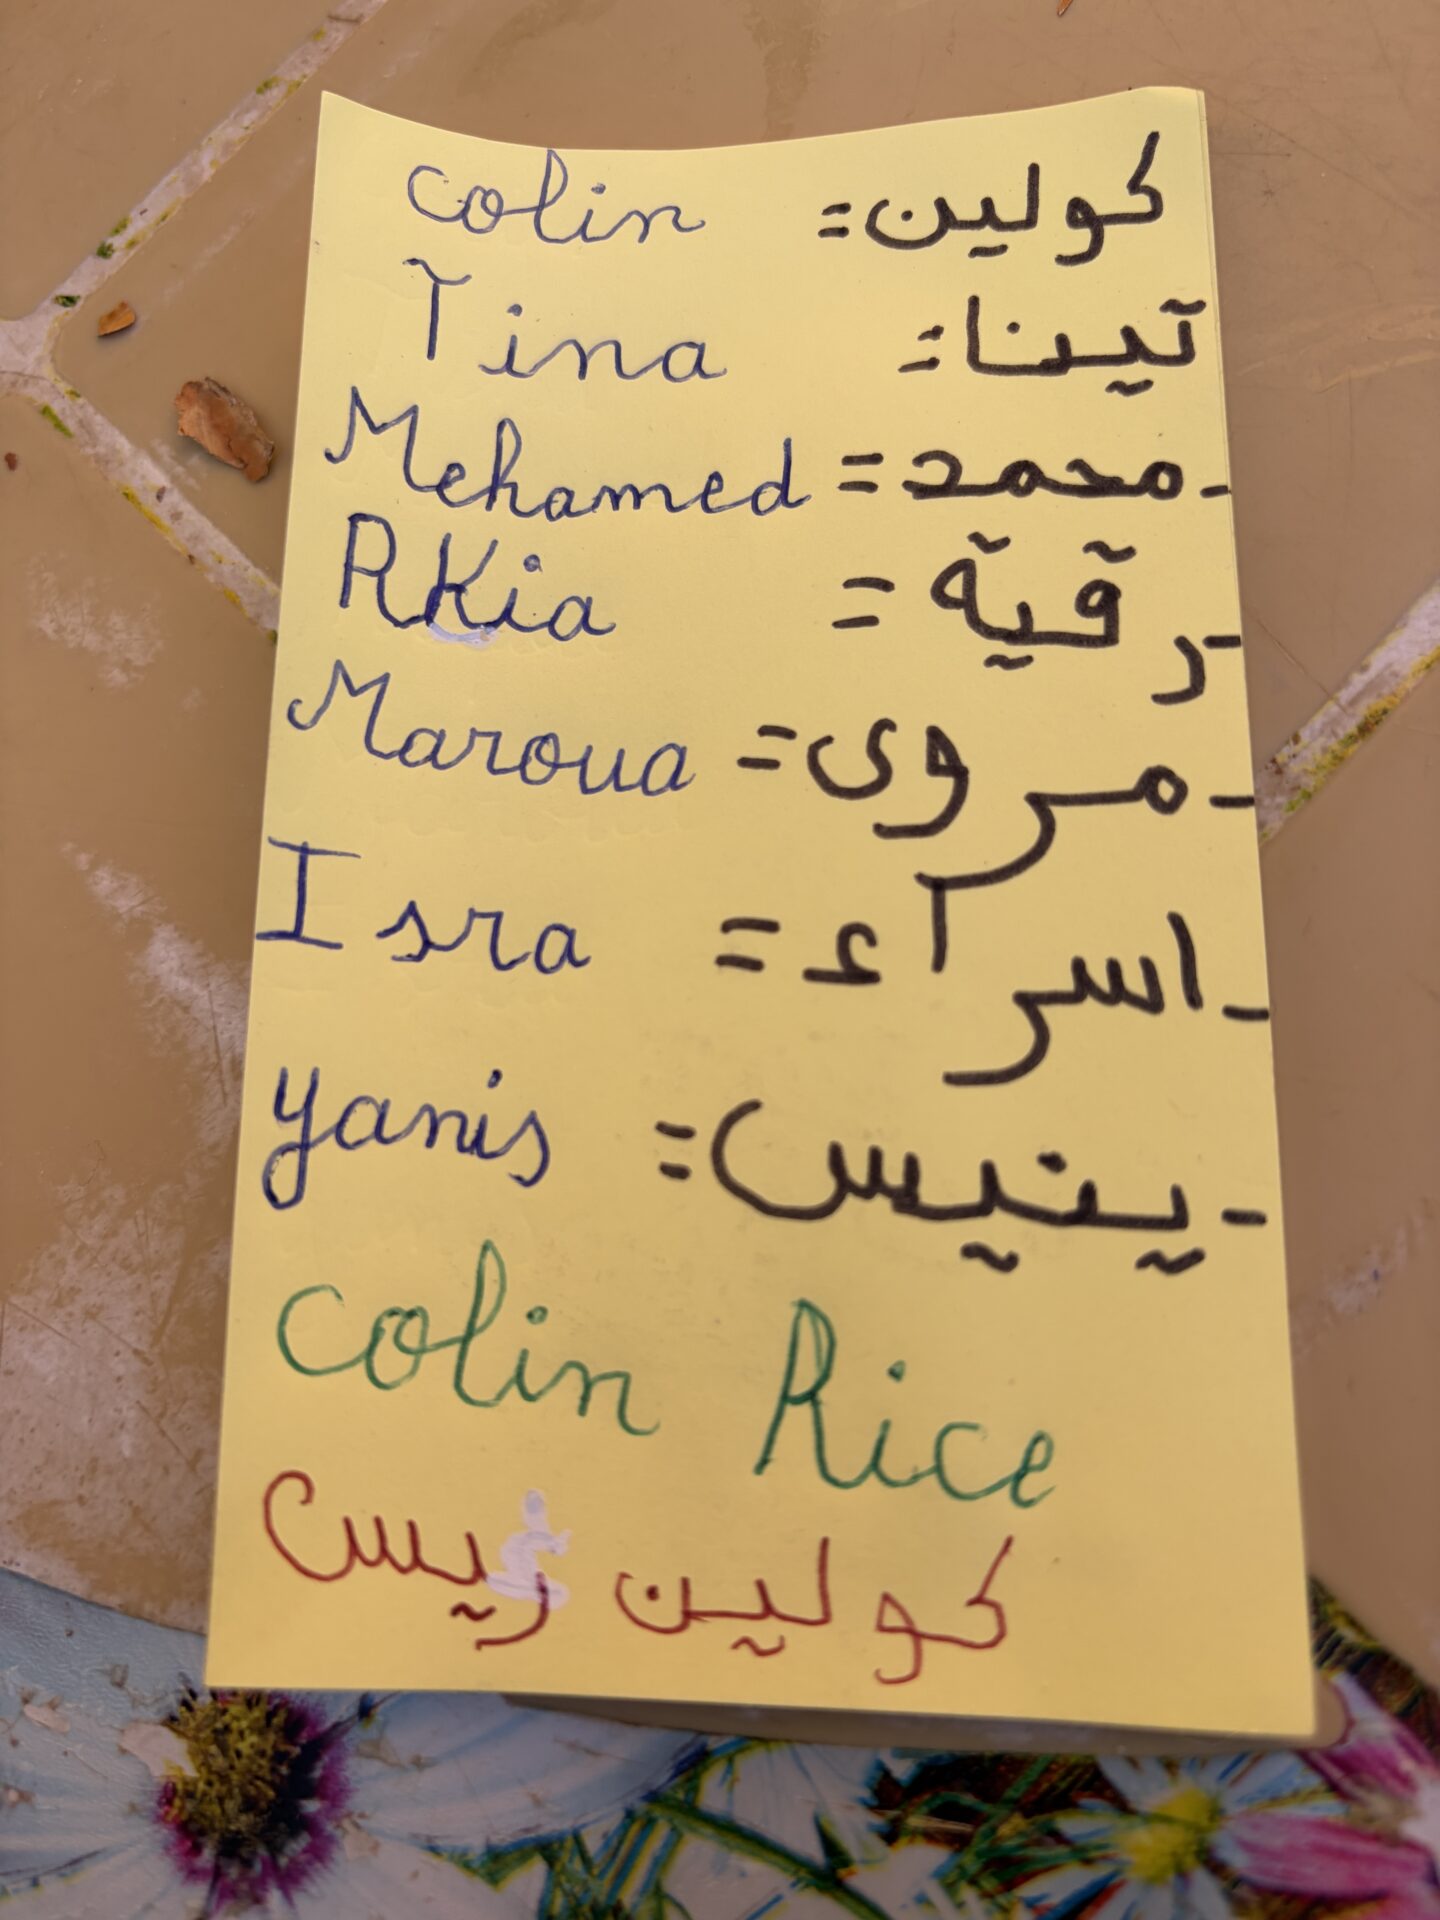 Colin =كولين
Tina =تينا
Mehamed =محمد-
RKia =رقية-
Maroua =مروى-
Isra =اسراء-
yanis =ينيس-
Colin Rice
كولين ريس